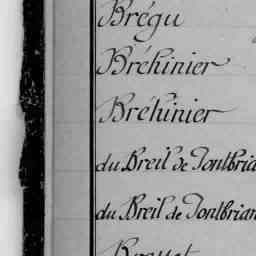 Brégu
Bréhinier
Bréhinier
du Breil de Pontbria
du Breil de Pontbrian